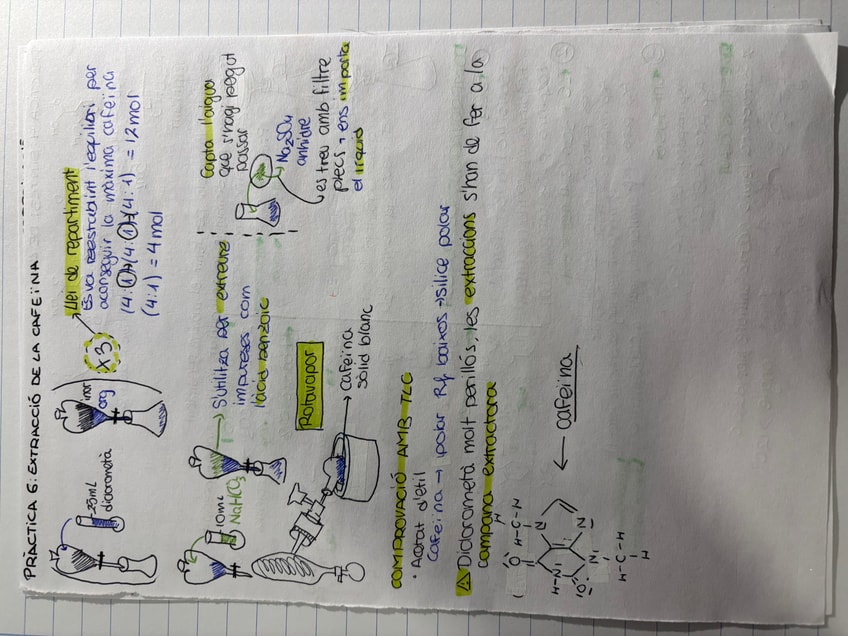 PRÀCTICA 6: EXTRACCIÓ DE LA CAFEÏNA
-25mL
diclorometà
inor
org
x3
Llei de repartiment
es va reestablint l'equilibri per
aconseguir la màxima cafeïna
(4:1)+(4:1)+(4:1) = 12 mol
(4:1) = 4 mol
-10mL
NaHCO3
S'utilitza per extreure
impureses com
l'àcid benzoic
Capta l'aigua
que s'hagi pogut
passar
Na2SO4
anhidre
es treu amb filtre
plecs, ens importa
el líquid
Rotavapor
cafeïna
sòlid blanc
COMPROVACIÓ AMB TLC
· Acetat d'etil
Cafeïna → polar Rf baixos → sílice polar
⚠ Diclorometà molt perillós, les extraccions s'han de fer a la
campana extractora
← cafeïna